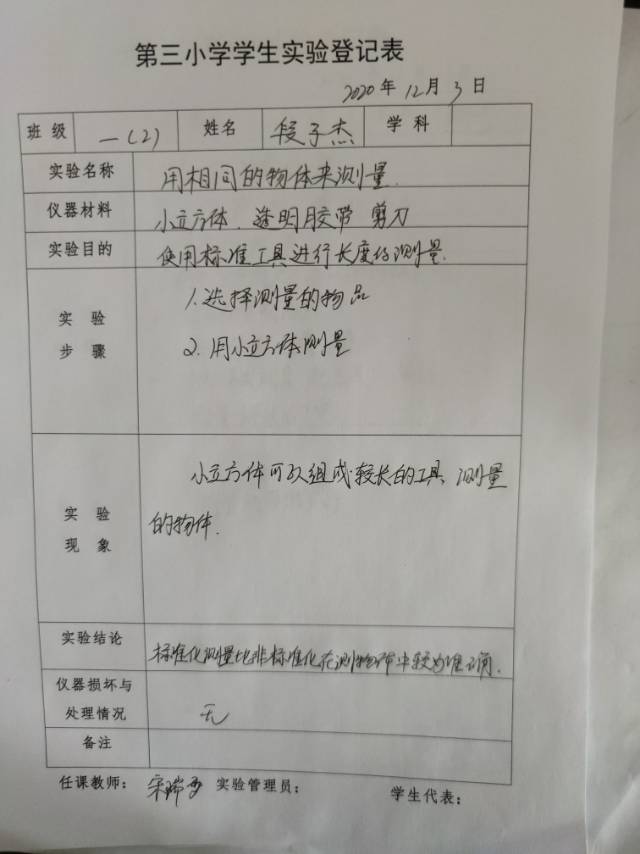 第三小学学生实验登记表
2020年12月3日
班级 一(2) 姓名 段子杰 学科
实验名称 用相同的物体来测量.
仪器材料 小立方体、透明胶带 剪刀
实验目的 使用标准工具进行长度的测量.
实验步骤
1.选择测量的物品
2.用小立方体测量
实验现象
小立方体可以组成较长的工具 测量
的物体.
实验结论 标准化测量比非标准化在测物体中较为准确.
仪器损坏与
处理情况 无
备注
任课教师: 宋 实验管理员: 学生代表: